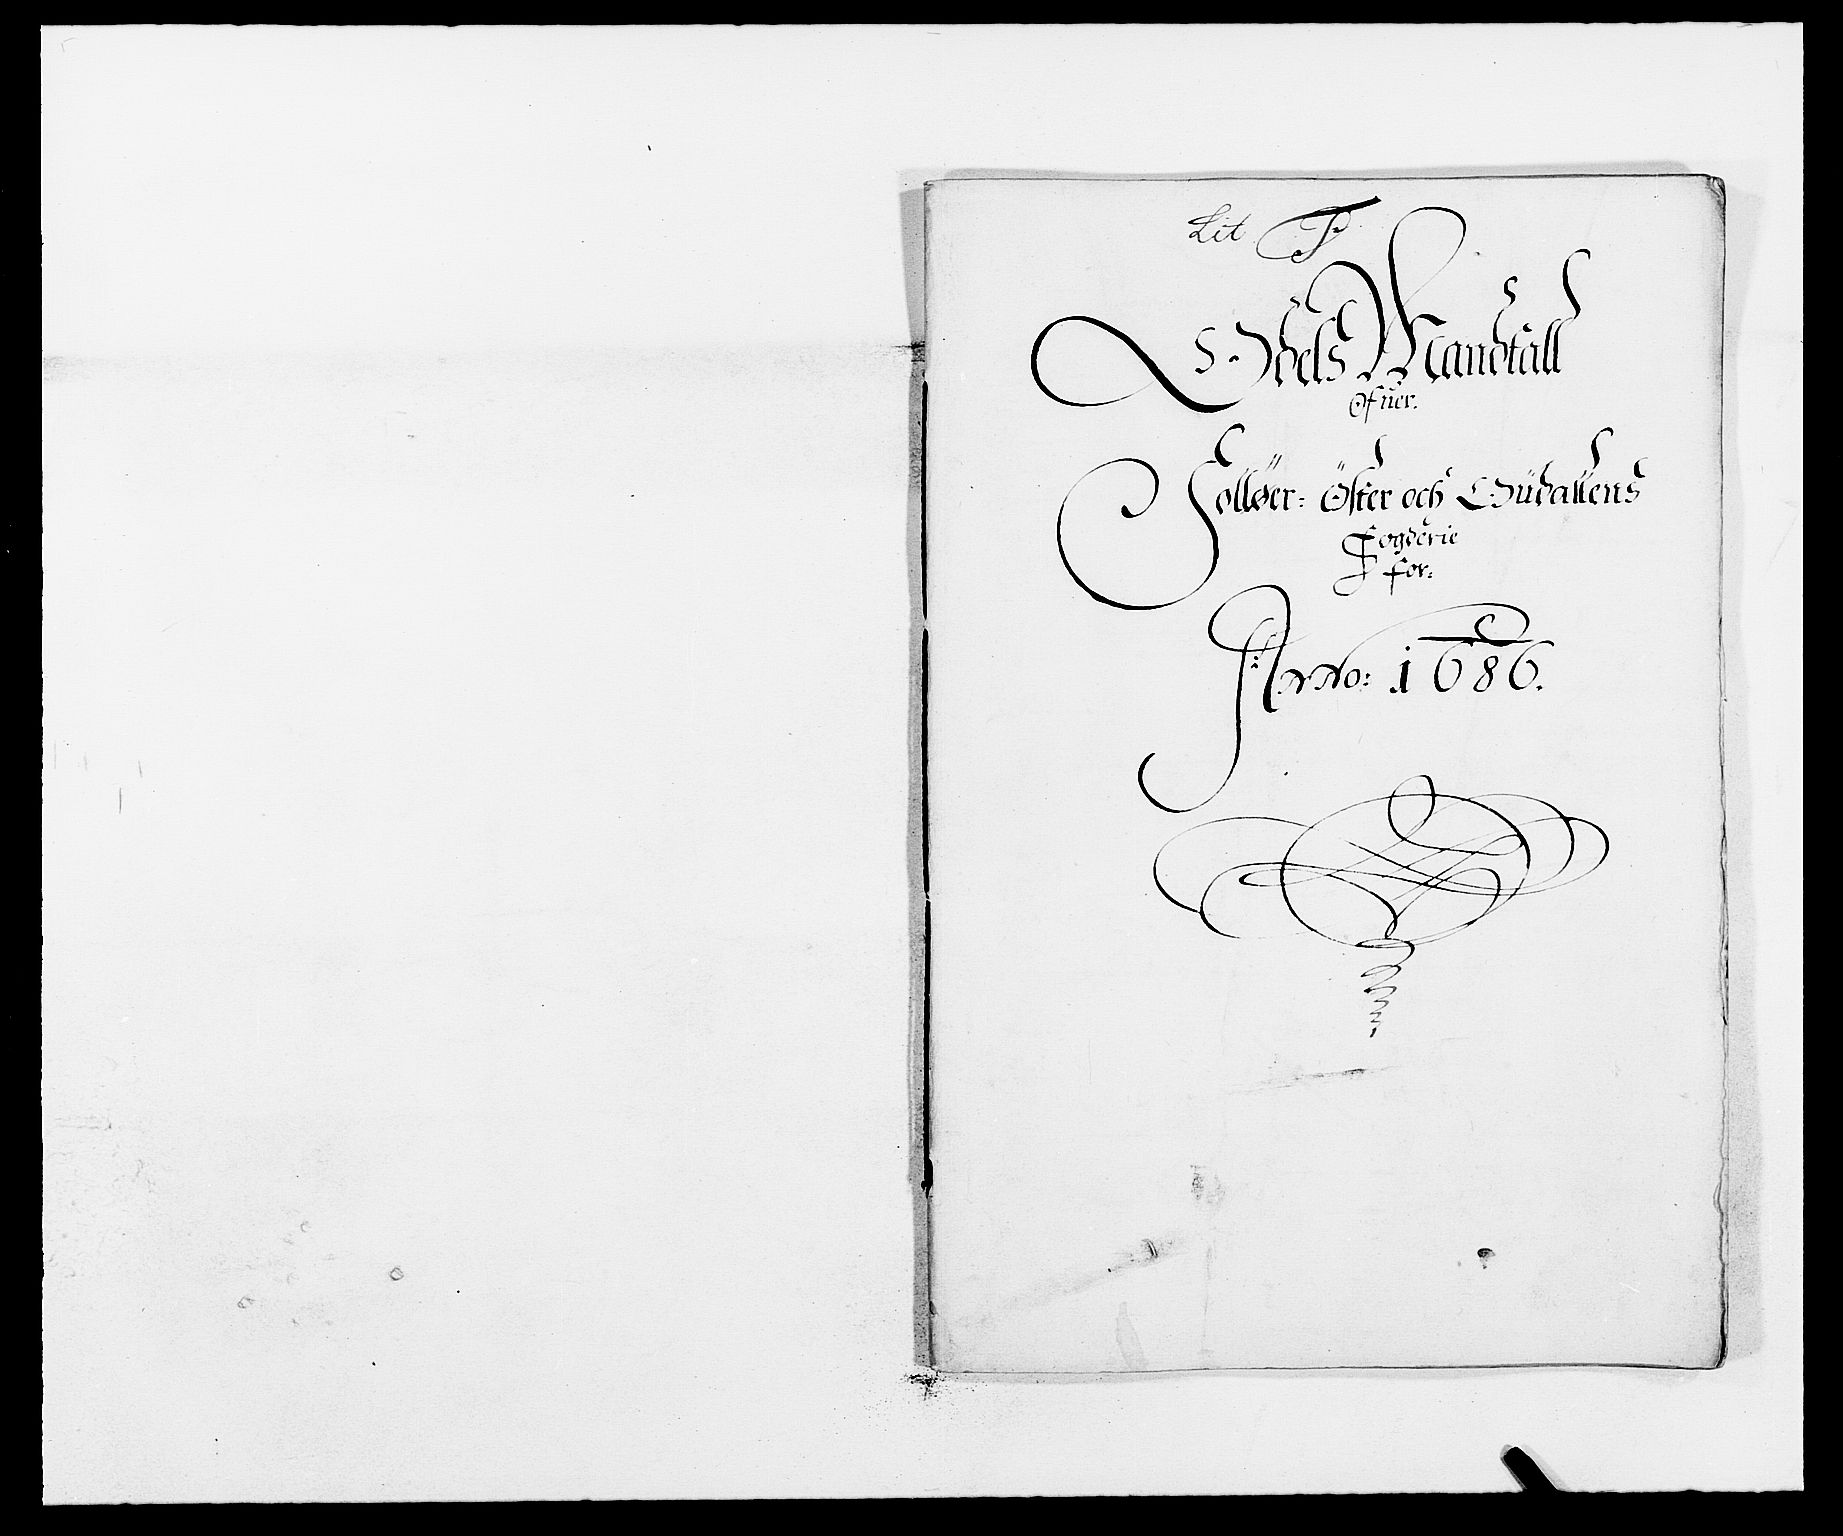 Lit F
Odels Mandtall
Ofuer.
Solløer: Öster och Oudallens
Fogderie
for:
Anno: 1686.